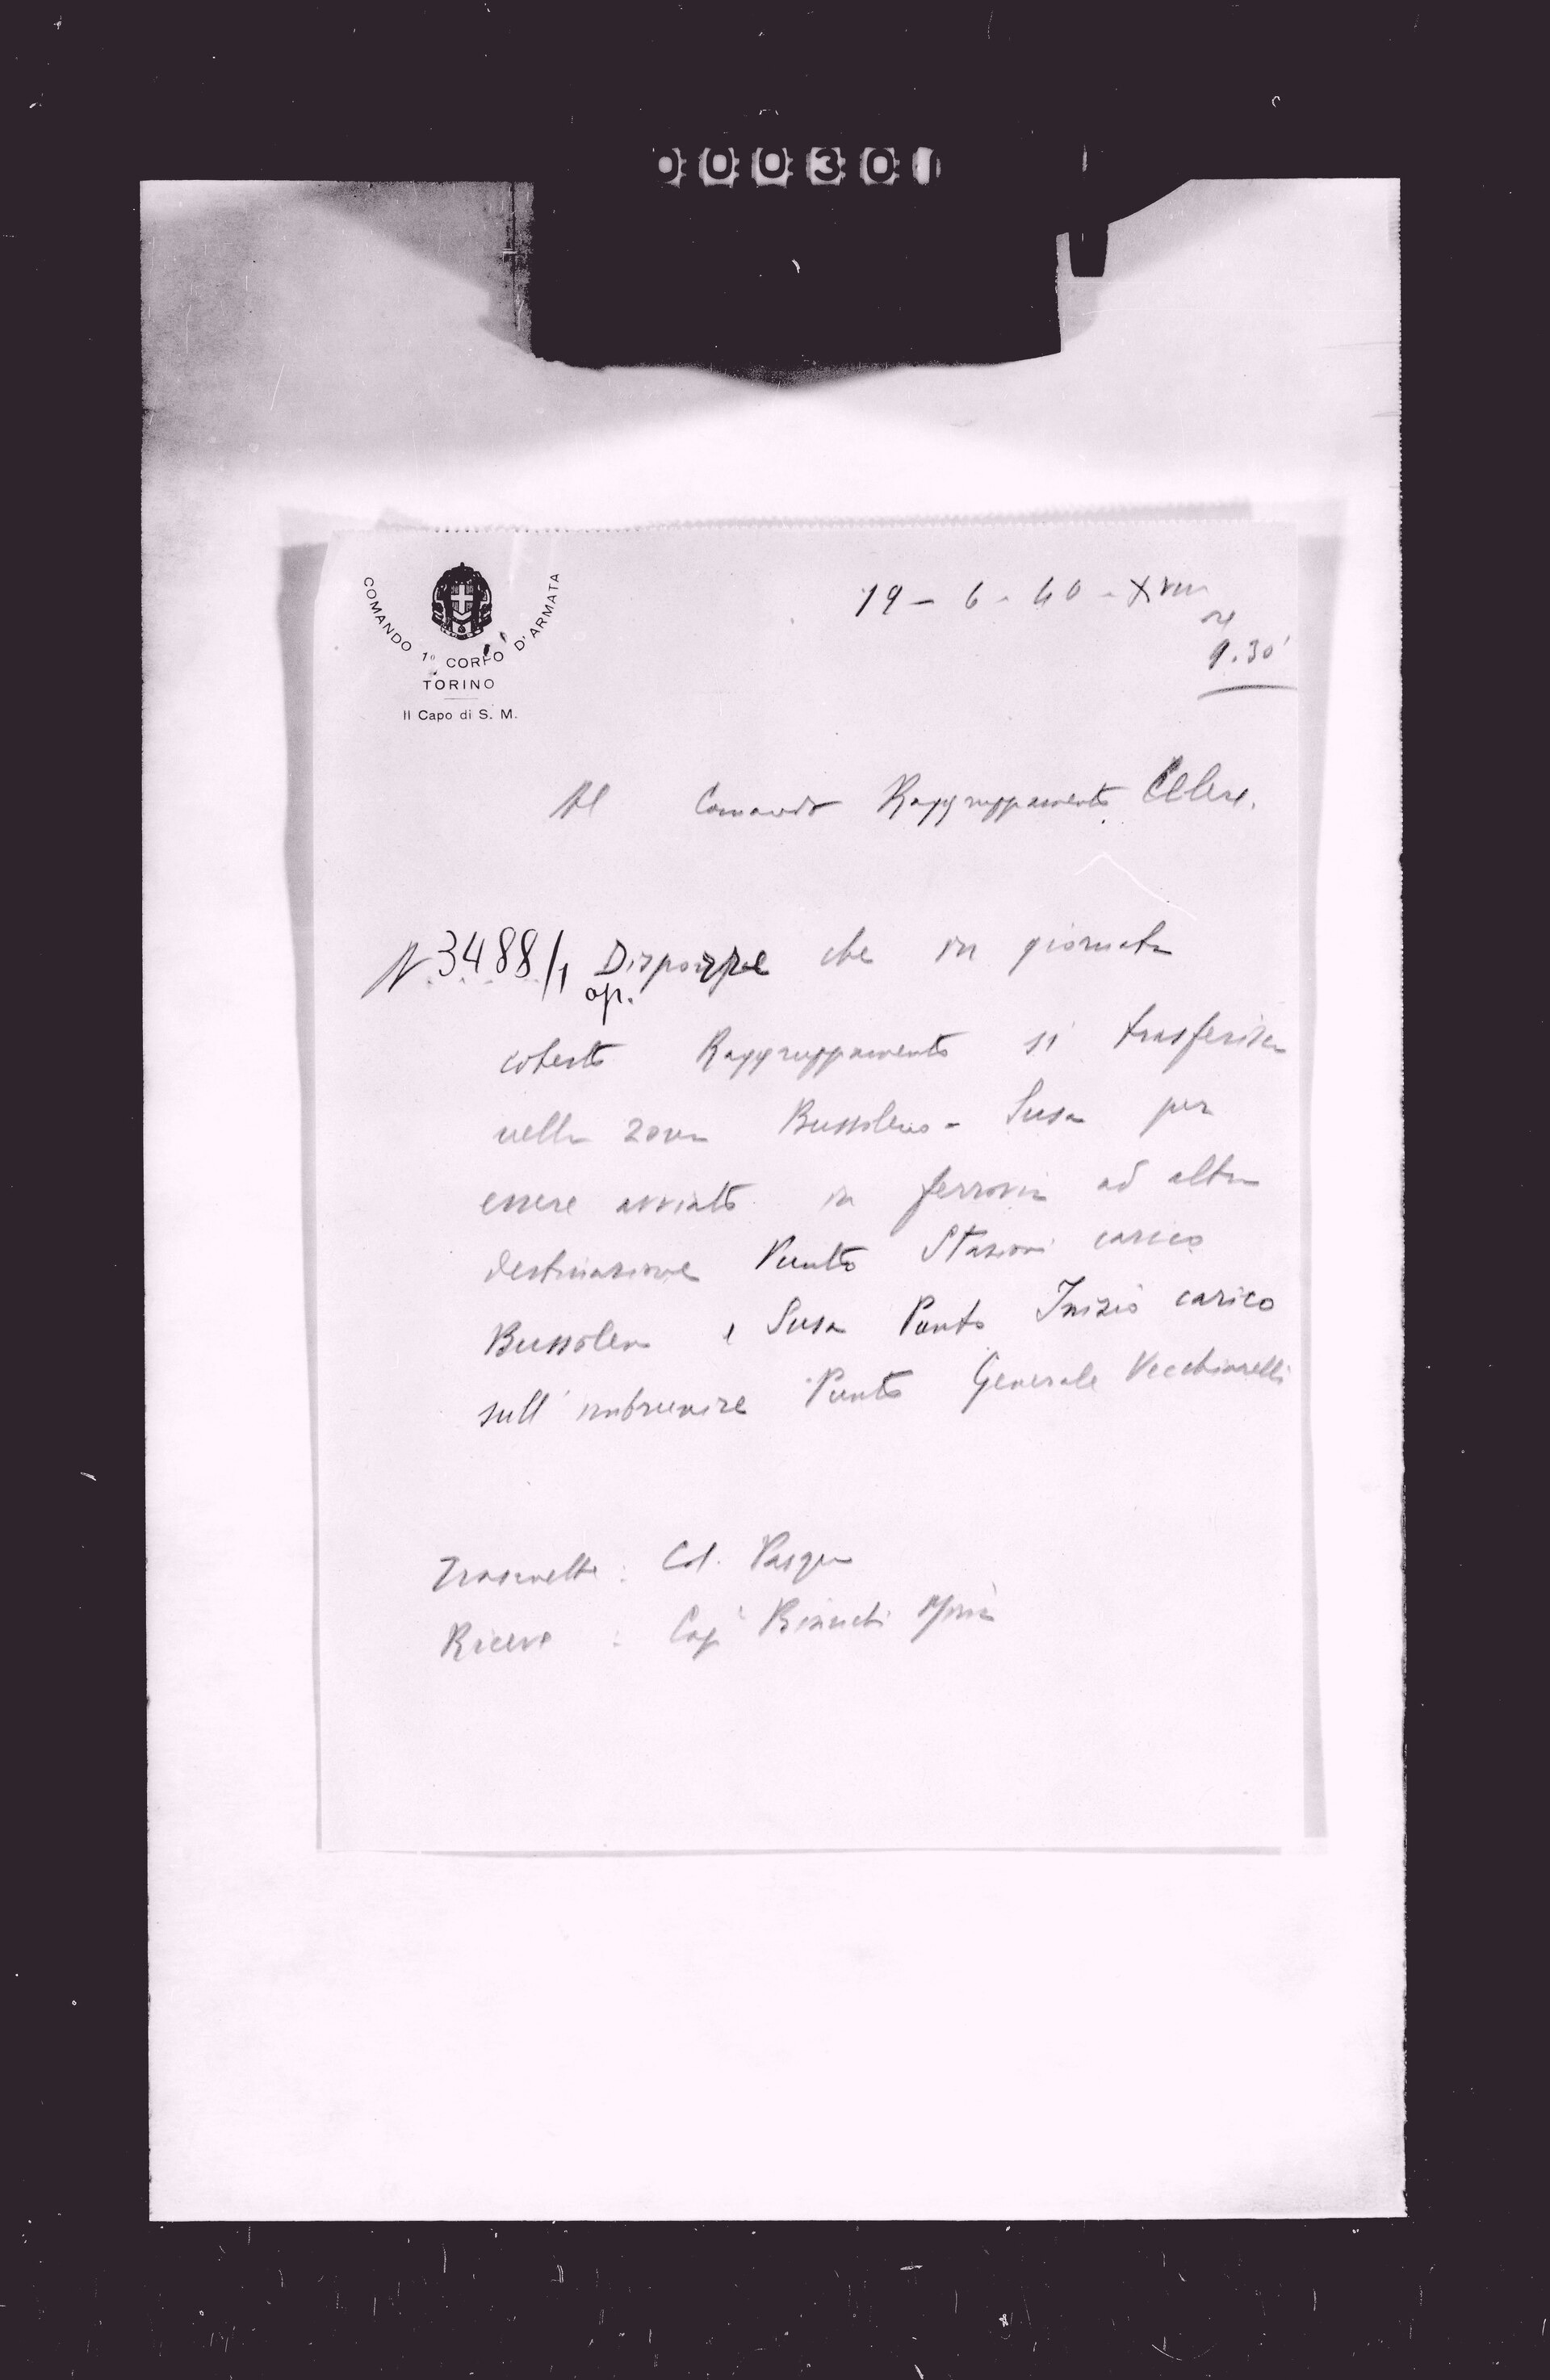 000301
COMANDO 1º CORPO D'ARMATA
TORINO
Il Capo di S. M.
19 - 6 - 40 - XVIII
ore
9.30'
Al Comando Raggruppamento Celere.
N 3488/1 Disporre che in giornata
op.
cotesto Raggruppamento si trasferisca
nella zona Bussoleno - Susa per
essere avviato in ferrovia ad altra
destinazione Punto Stazioni carico
Bussoleno e Susa Punto Inizio carico
sull'imbrunire Punto Generale Vecchiarelli
Trasmette : Col. Pasqua
Riceve : Cap Bianchi